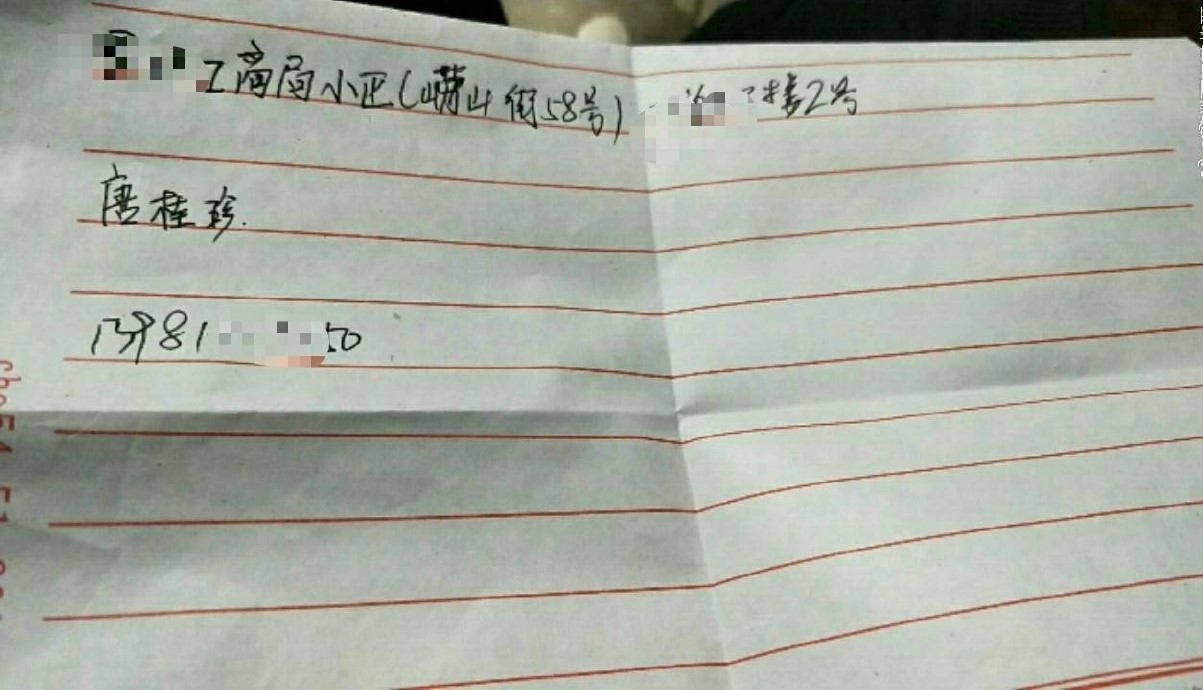 工商局小区(崂山街58号) 楼2号
唐桂珍.
13981 50